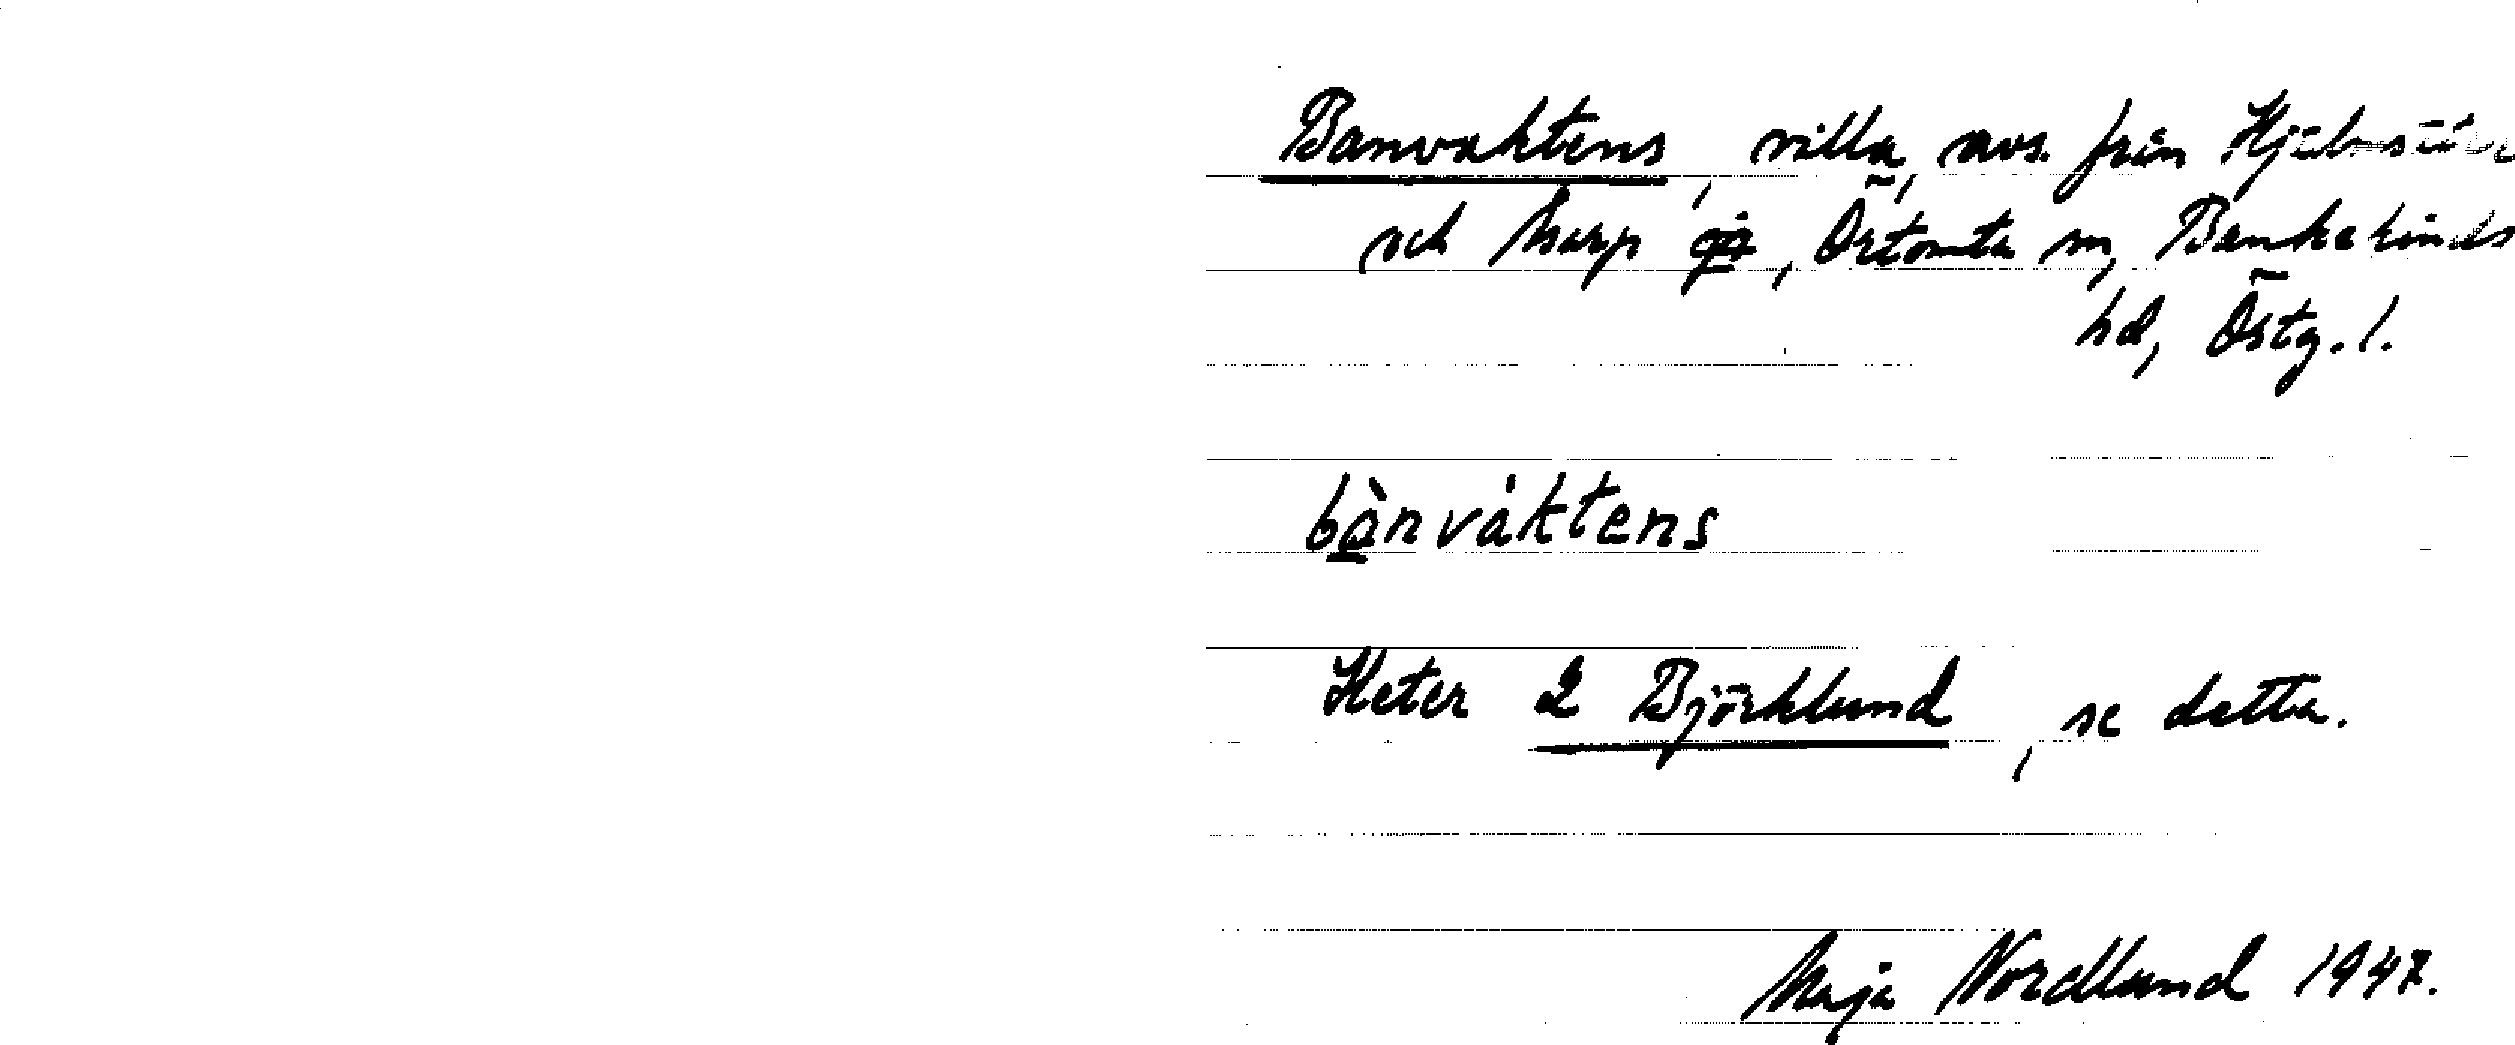 Banvaktens, villa, avs. från Hjälmsäter
och Narp gå, Örtomta sn, Bankekinds
hd, Östg. l.
bànváktens
Heter 2 Björklund, se detta.
Maja Nordlund 1947.